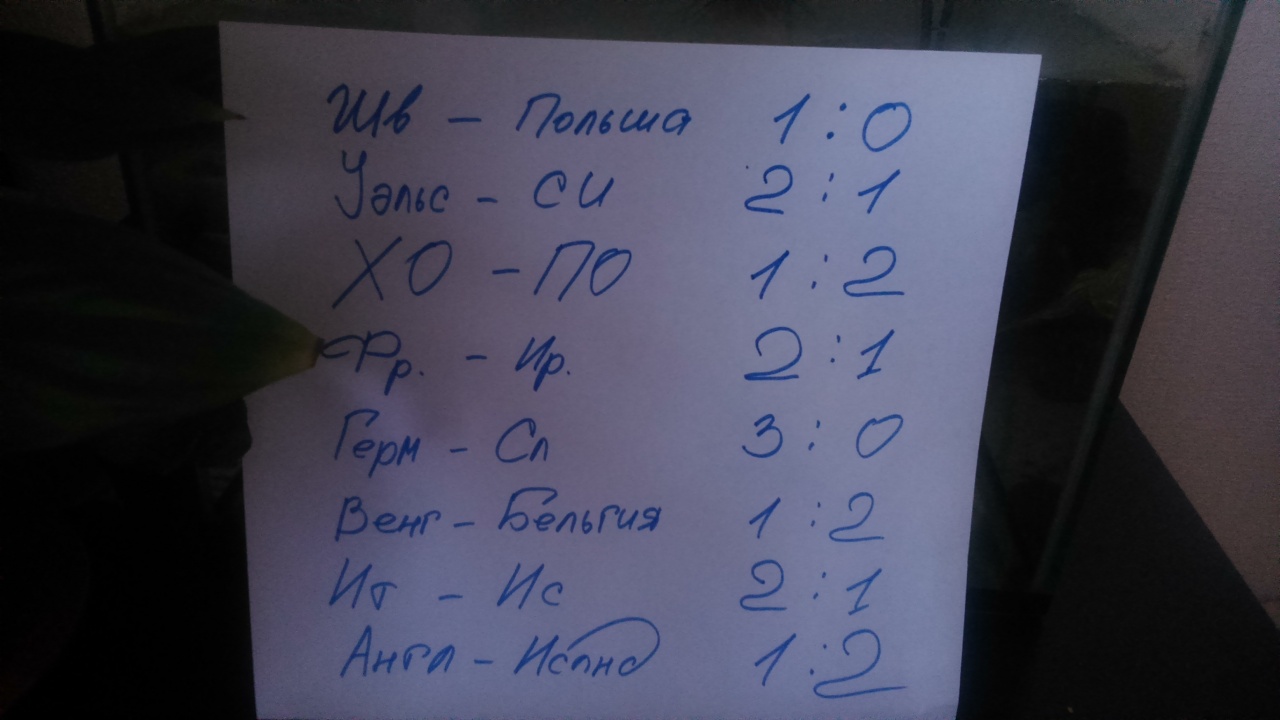 Шв - Польша 1:0
Уэльс - СИ 2:1
ХО - ПО 1:2
Фр. - Ир. 2:1
Герм - Сл 3:0
Венг - Бельгия 1:2
Ит - Ис 2:1
Англ - Исланд 1:2